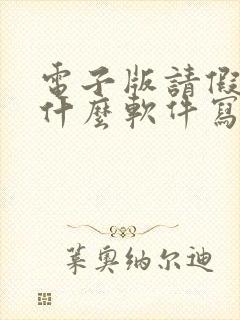 電子版請假
什麼軟件寫
葉奧纳尔迪